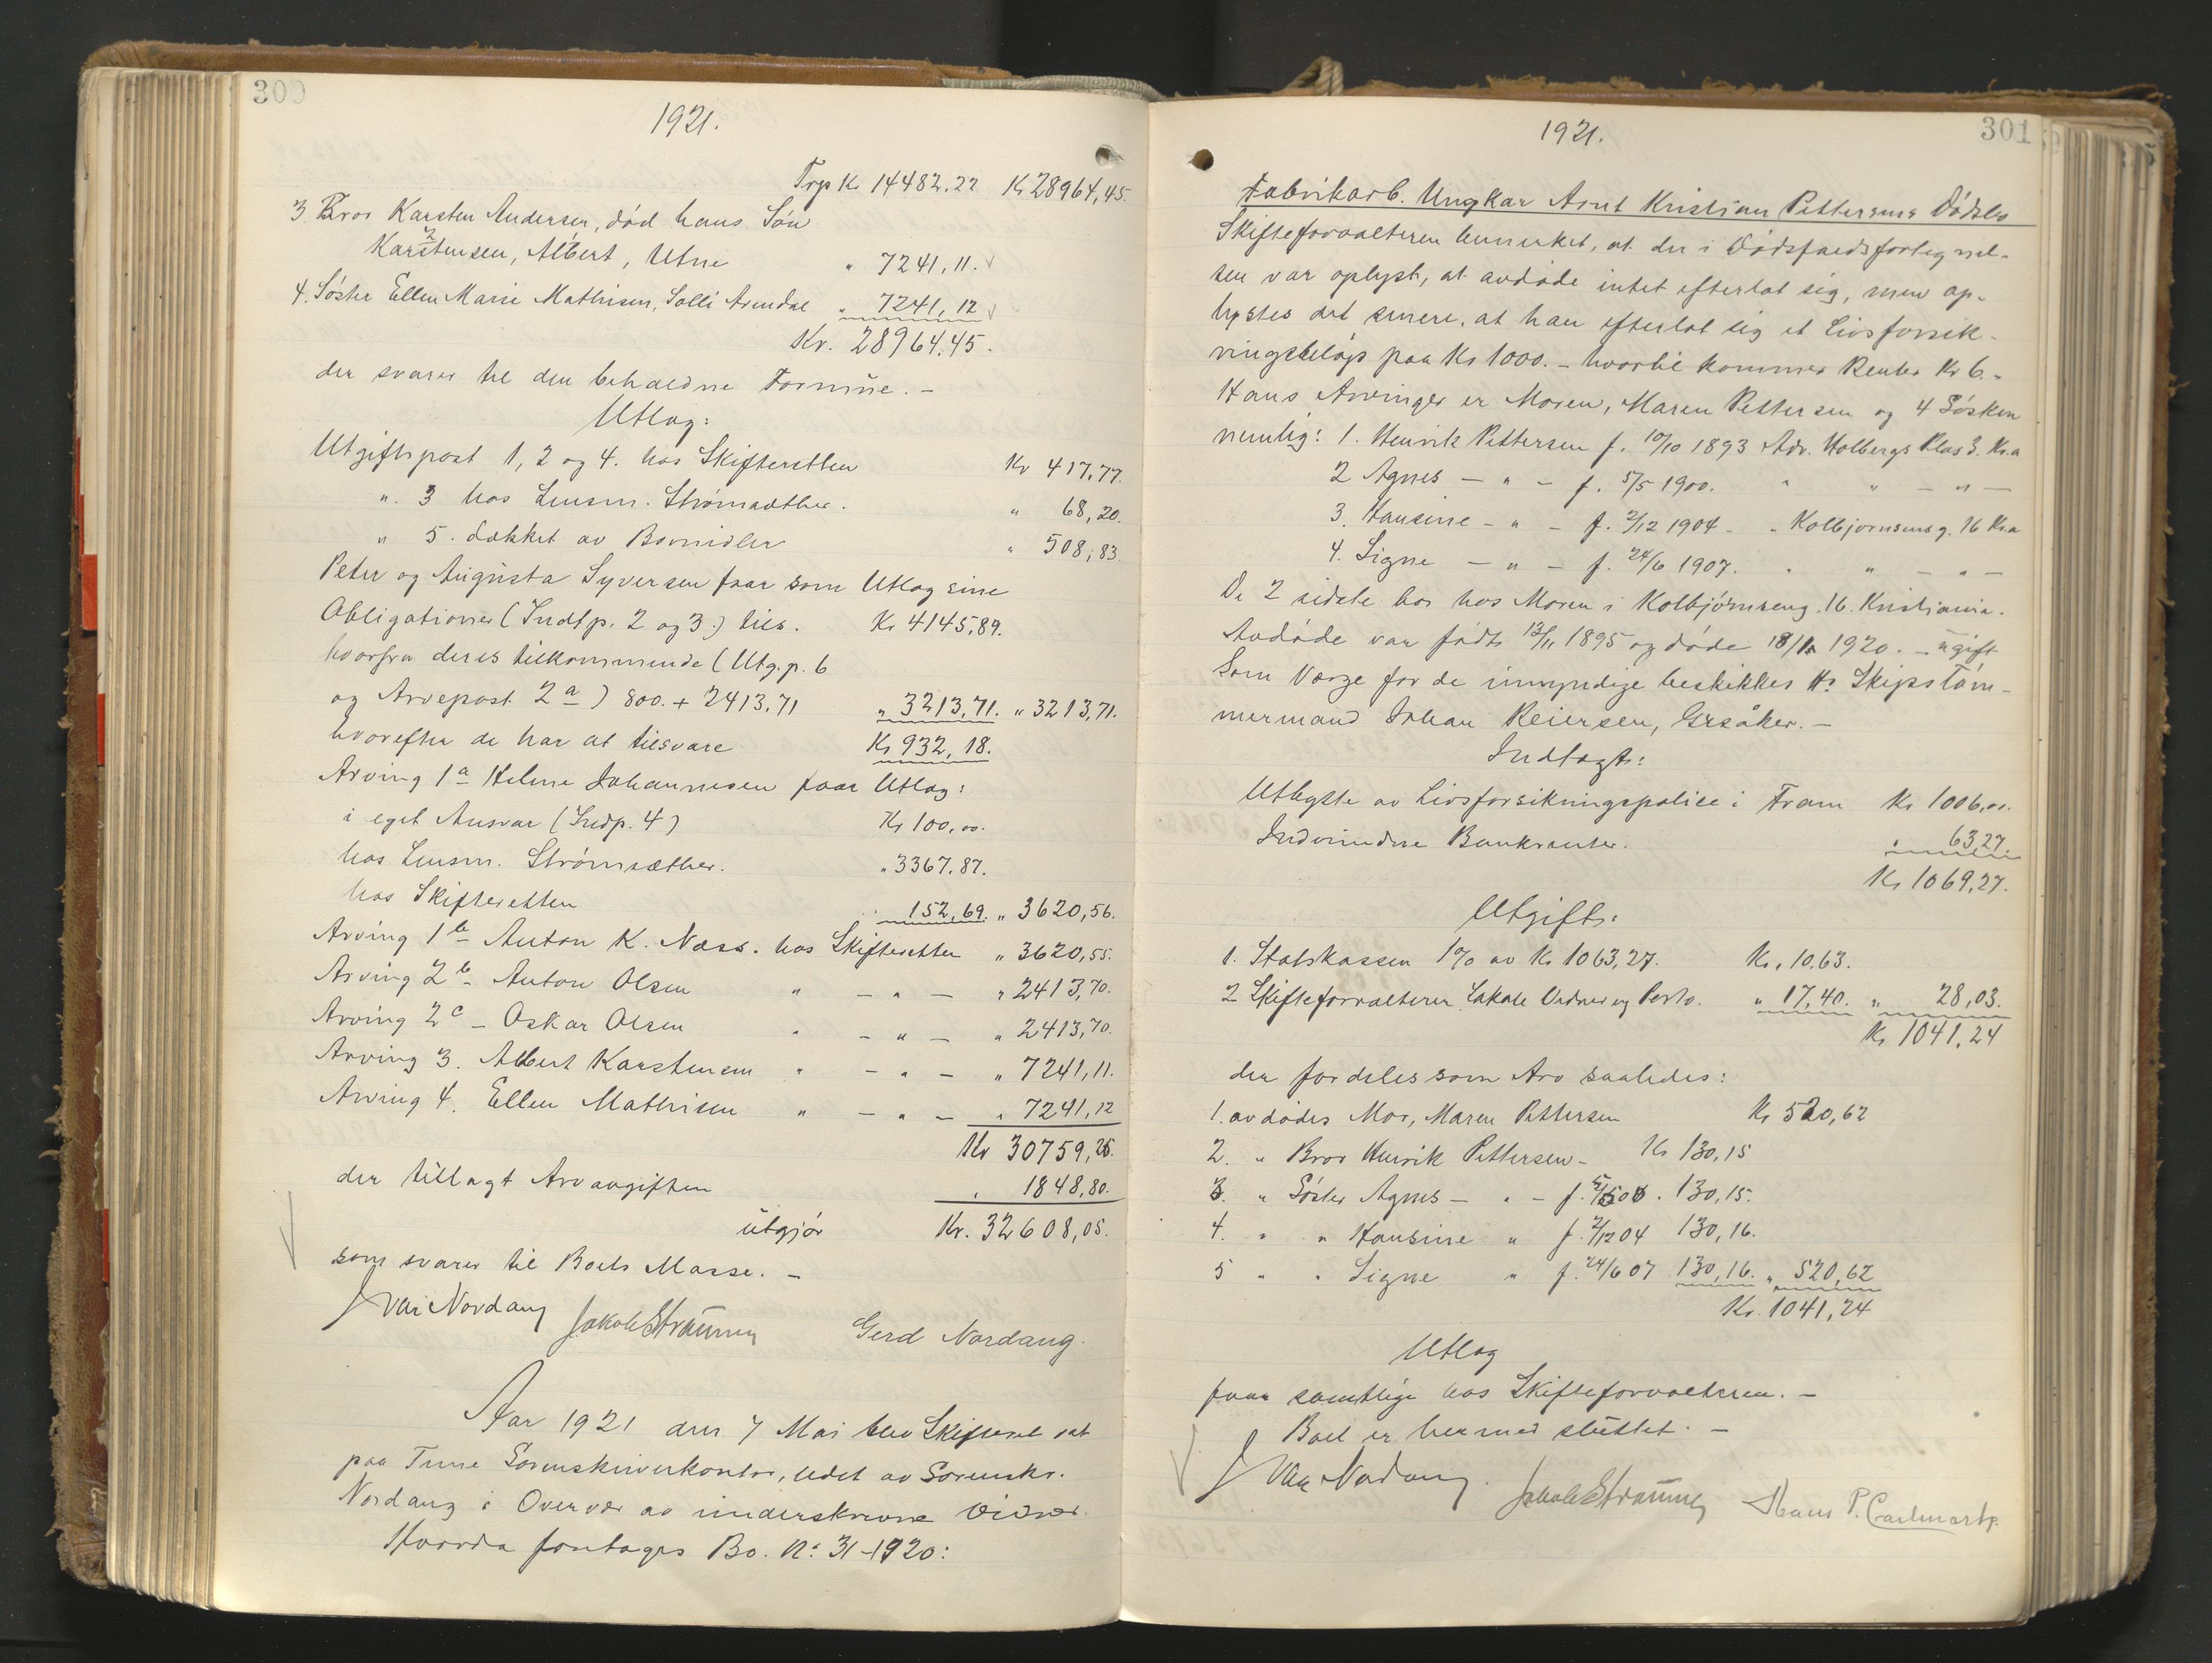 300
1921.
Trp Kr 14482.22 Kr 28964,45.
3. Bror Karsten Andersen, død hans Søn
Karstensen, Albert, Utne " 7241,11.
4. Søster Ellen Marie Mathisen, Solli Arendal " 7241,12
Kr. 28964.45.
der svarer til den beholdne Formue. -
Utlæg:
Utgiftspost 1, 2 og 4. hos Skifteretten Kr 417.77.
" 3 hos Lensm. Strømsæther. " 68,20.
" 5. dækket av Bomidler " 508,83.
Peter og Augusta Syversen faar som Utlæg sine
Obligationer (Indt p. 2 og 3.) tils. Kr 4145,89.
hvorfra deres tilkommende (Utg. p. 6
og Arvepost 2a) 800. + 2413.71 " 3213,71. " 3213,71.
hvorefter de har at tilsvare Kr 932,18.
Arving 1a Helene Johannesen faar Utlæg:
i eget Ansvar (Indp. 4) Kr 100,00.
hos Lensm. Strømsæther. " 3367.87.
hos Skifteretten 152,69. " 3620,56.
Arving 1b Anton K. Næss. hos Skifteretten " 3620,55.
Arving 2b - Anton Olsen " - " - " 2413,70.
Arving 2c - Oskar Olsen " - " - " 2413,70.
Arving 3. Albert Karstensen " - " - " 7241,11.
Arving 4. Ellen Mathisen " - " - " 7241,12
Kr 30759,25.
der tillagt Arveavgiften " 1848,80.
utgjør Kr. 32608,05.
som svarer til Boets Masse. -
Nordang Jakob Gerd Nordang.
Aar 1921 den 7 Mai blev Skifteret sat
paa Tune Sorenskriverkontor, ledet av Sorenskr.
Nordang i Overvær av underskrevne Vidner.
Hvorda foretages Bo. No 31-1920:
301
1921.
Fabrikarb. Ungkar Arnt Kristian Pettersens Dødsbo
Skifteforvalteren bemerket, at der i Dødsfaldsfortegnel-
sen var oplyst, at avdøde intet efterlot sig, men op-
lystes det senere, at han efterlot sig et Livsforsik-
ringsbeløp paa Kr 1000. - hvortil kommer Renter Kr 6.-
Hans Arvinger er Moren, Maren Pettersen og 4 Søsken
nemlig: 1. Henrik Pettersen f. 10/10 1893 Adr. Holbergs Plas 3. Kr.a
2 Agnes - " - f. 5/5 1900. " " - " -
3. Hansine - " - f. 2/12 1904 - " Kolbjørnsensg. 16 Kr.a
4. Signe - " - f. 24/6 1907. " " - " -
De 2 sidste bor hos Moren i Kolbjørnseng. 16. Kristiania.
Avdøde var født 13/11 1895 og døde 18/11 1920. - ugift
Som Værge for de umyndige beskikkes Hr. Skipstøm-
mermand Johan Reiersen, Greåker. -
Indtægt:
Utbytte av Livsforsikringspolise i Fram Kr 1006,00.
Indvundne Bankrenter. " 63,27.
Kr 1069,27.
Utgift:
1. Statskassen 1% av Kr 1063,27. Kr. 10,63.
2 Skifteforvalteren Lokale Vidner og Porto. " 17,40. " 28,03.
Kr 1041,24
der fordeles som Arv saaledes:
1. avdødes Mor, Maren Pettersen Kr 520,62
2. " Bror Henrik Pettersen - Kr 130,15
3. " Søster Agnes - " - f. 5/5 00. 130,15.
4. " " Hansine " f. 2/12 04 130,16.
5 " " Signe " f. 24/6 07 130,16. " 520,62
Kr. 1041,24
Utlæg
faar samtlige hos Skifteforvalteren. -
Boet er hermed sluttet. -
Nordang. Jakob Hans P.